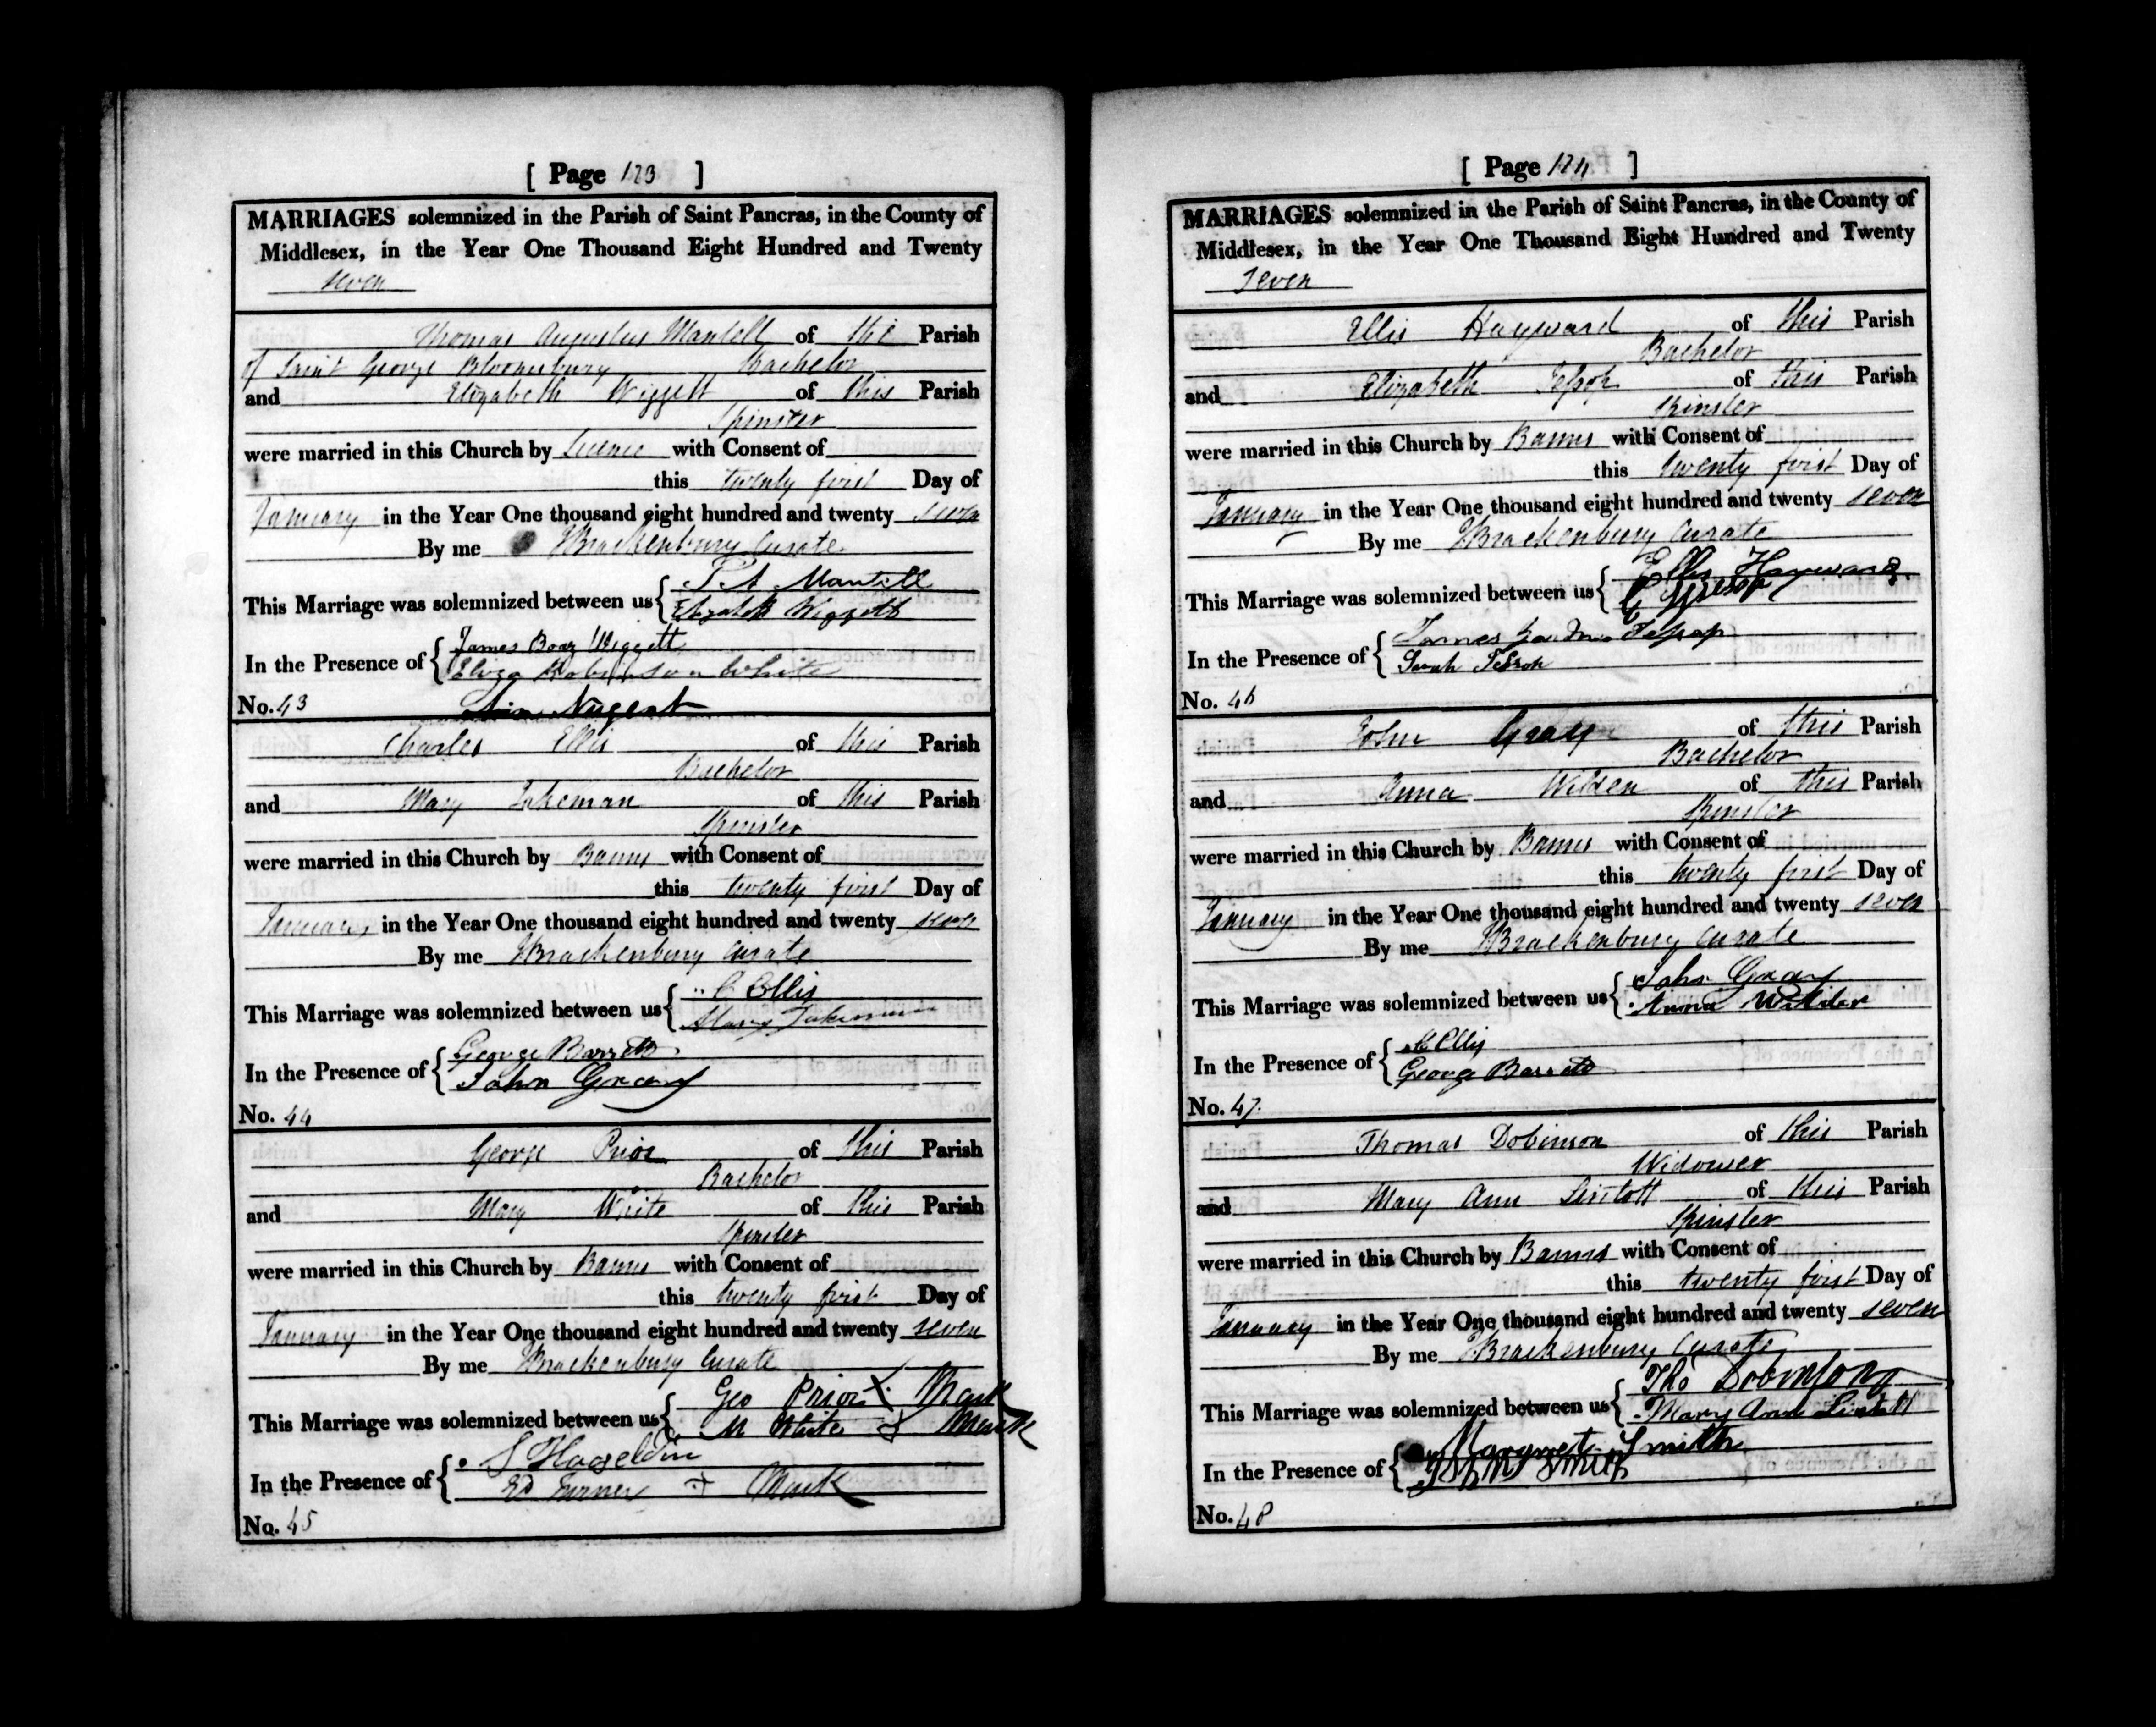 [ Page 123 ]
MARRIAGES solemnized in the Parish of Saint Pancras, in the County of
Middlesex, in the Year One Thousand Eight Hundred and Twenty
seven
Thomas Augustus Mantell of the Parish
of Saint George Bloomsbury Bachelor
and Elizabeth Wiggett of this Parish
Spinster
were married in this Church by Licence with Consent of
this twenty first Day of
January in the Year One thousand eight hundred and twenty seven
By me Brackenbury Curate
This Marriage was solemnized between us { T A Mantell
Elizabeth Wiggett
In the Presence of { James Boaz Wiggett
Eliza Robinson White
Ann Nugent
No. 43
Charles Ellis of this Parish
Bachelor
and Mary Lakeman of this Parish
Spinster
were married in this Church by Banns with Consent of
this twenty first Day of
January in the Year One thousand eight hundred and twenty seven
By me Brackenbury Curate
This Marriage was solemnized between us { C Ellis
Mary
In the Presence of { George Barrett
John Gray
No. 44
George Prior of this Parish
Bachelor
and Mary White of this Parish
Spinster
were married in this Church by Banns with Consent of
this twenty first Day of
January in the Year One thousand eight hundred and twenty seven
By me Brackenbury Curate
This Marriage was solemnized between us { Geo Prior X Mark
M White + Mark
In the Presence of { S Hazeldin
Ed Turner + Mark
No. 45
[ Page 124 ]
MARRIAGES solemnized in the Parish of Saint Pancras, in the County of
Middlesex, in the Year One Thousand Eight Hundred and Twenty
seven
Ellis Hayward of this Parish
Bachelor
and Elizabeth Jessop of this Parish
Spinster
were married in this Church by Banns with Consent of
this twenty first Day of
January in the Year One thousand eight hundred and twenty seven
By me Brackenbury Curate
This Marriage was solemnized between us { Ellis Hayward
E Jessop
In the Presence of { James Jessop
Sarah Jessop
No. 46
John Gray of this Parish
Bachelor
and Anna Wilden of this Parish
Spinster
were married in this Church by Banns with Consent of
this twenty first Day of
January in the Year One thousand eight hundred and twenty seven
By me Brackenbury Curate
This Marriage was solemnized between us { John Gray
Anna Wilden
In the Presence of { C Ellis
George Barrett
No. 47.
Thomas Dobinson of this Parish
Widower
and Mary Ann Lintott of this Parish
Spinster
were married in this Church by Banns with Consent of
this twenty first Day of
January in the Year One thousand eight hundred and twenty seven
By me Brackenbury Curate
This Marriage was solemnized between us { Tho Dobinson
Mary Ann Lintott
In the Presence of { Margaret Smith
Smith
No. 48